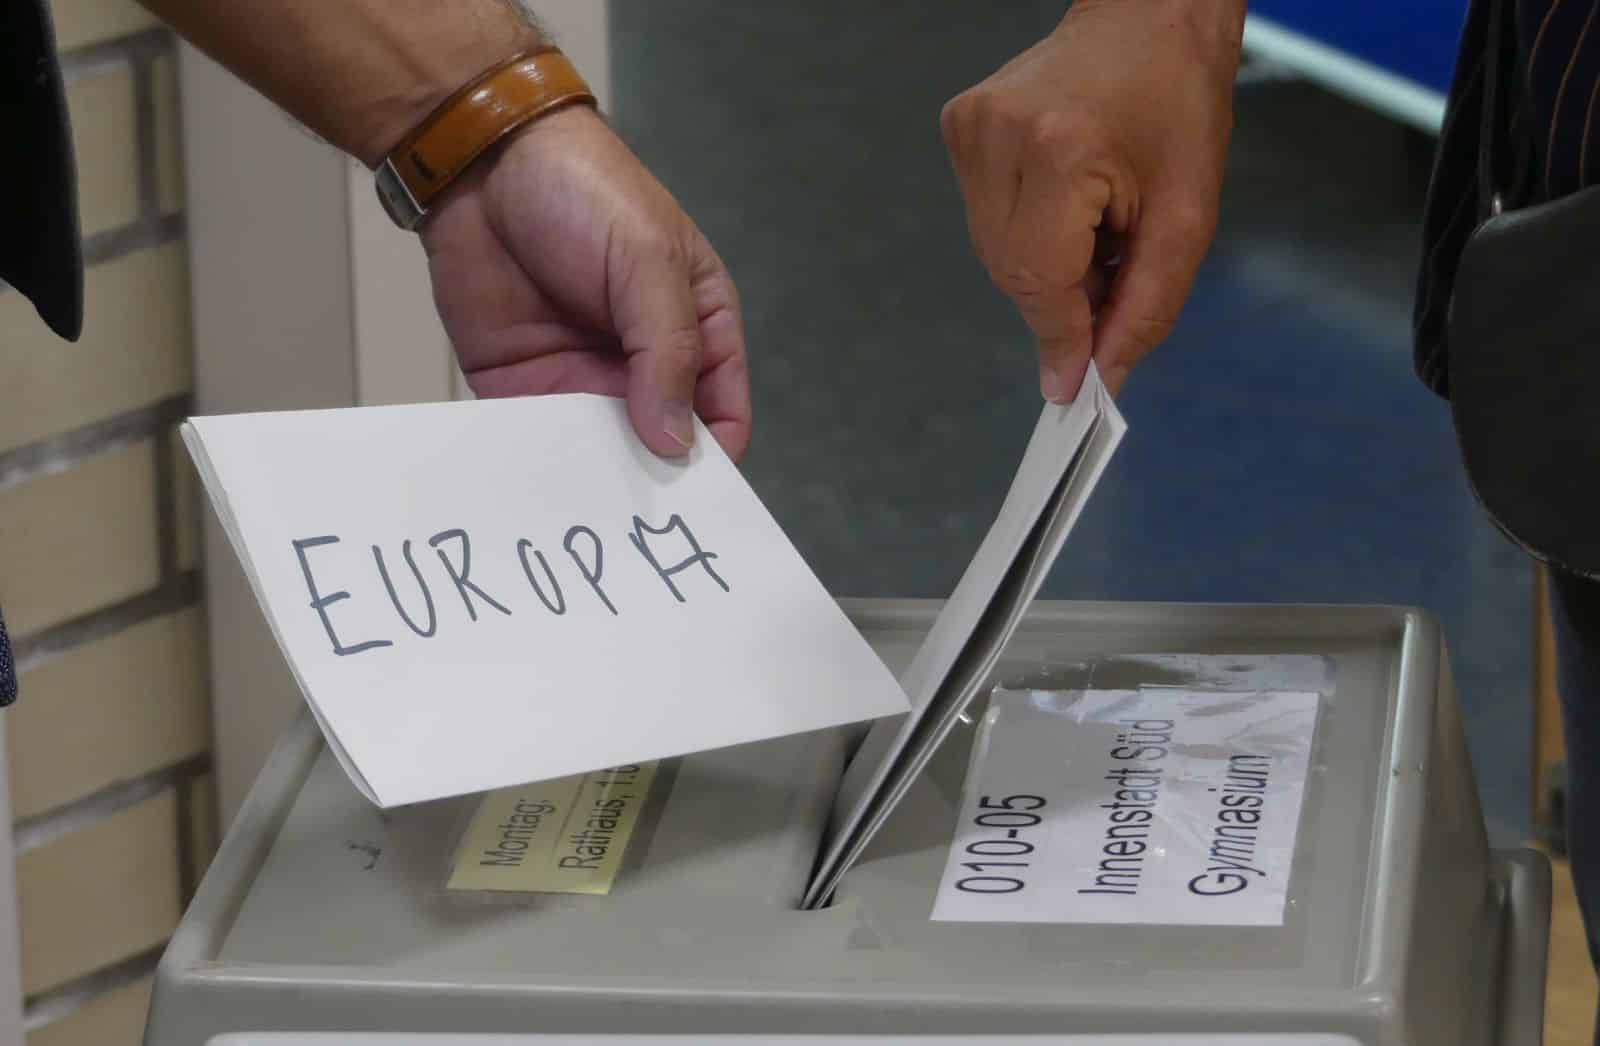 EUROPA
Montag:
Rathaus, 1.
010-05
Innenstadt Süd
Gymnasium